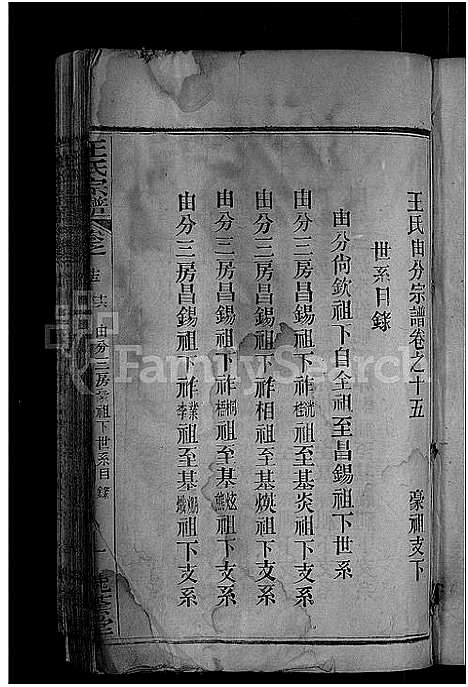 王氏由分宗譜卷之十五 豪祖支下
世系目錄
由分尙欽祖下自全祖至昌錫祖下世系
由分三房昌錫祖下祚桂祖至基炎祖下支系
由分三房昌錫祖下祚相祖至基煐祖下支系
由分三房昌錫祖下祚桐梧祖至基炫熊祖下支系
由分三房昌錫祖下祚業李祖至基下支系
王氏宗譜 卷之 由分三房 祖下世系目錄 一
FamilySearch